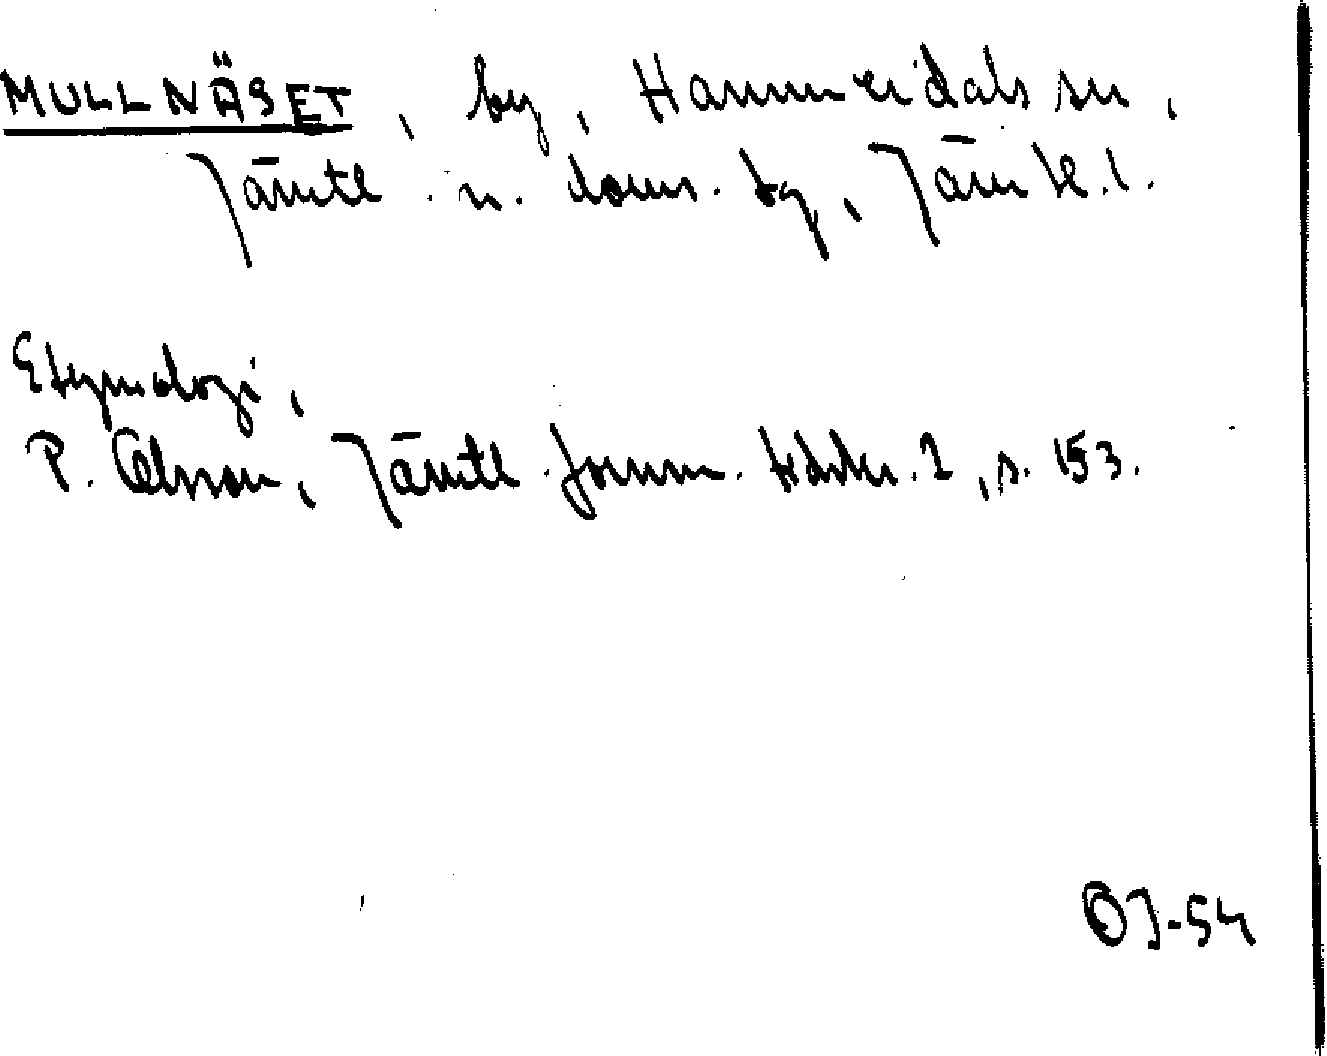 MULLNÄSET, by, Hammerdals sn,
Jämtl. n. doms. tg, Jämtl. l.
Etymologi,
P. Olsson, Jämtl. fornm. tidskr. 1, s. 153.
OJ-54